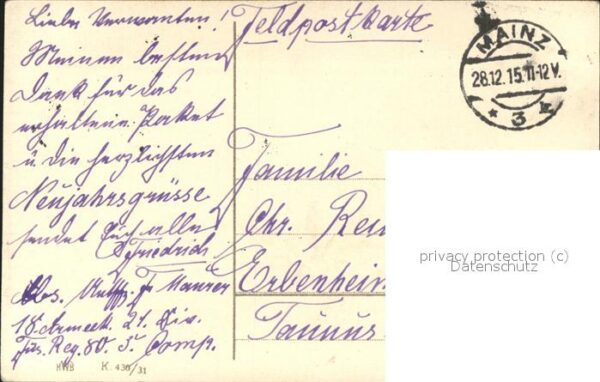 Liebe Verwanten!
Meinen besten
Dank für das
erhaltene Paket
u die herzlichsten
Neujahrsgrüsse
sendet Euch allen
Friedrich
Abs. Fr Maurer
18 Armeek. 21. Div.
Füs. Reg. 80. 5. Comp.
HWB K. 430/31
Feldpostkarte
MAINZ
28.12.15.11-12 V.
* 3 *
Familie
Chr.
Erbenheim
Taunus
privacy protection (c)
Datenschutz